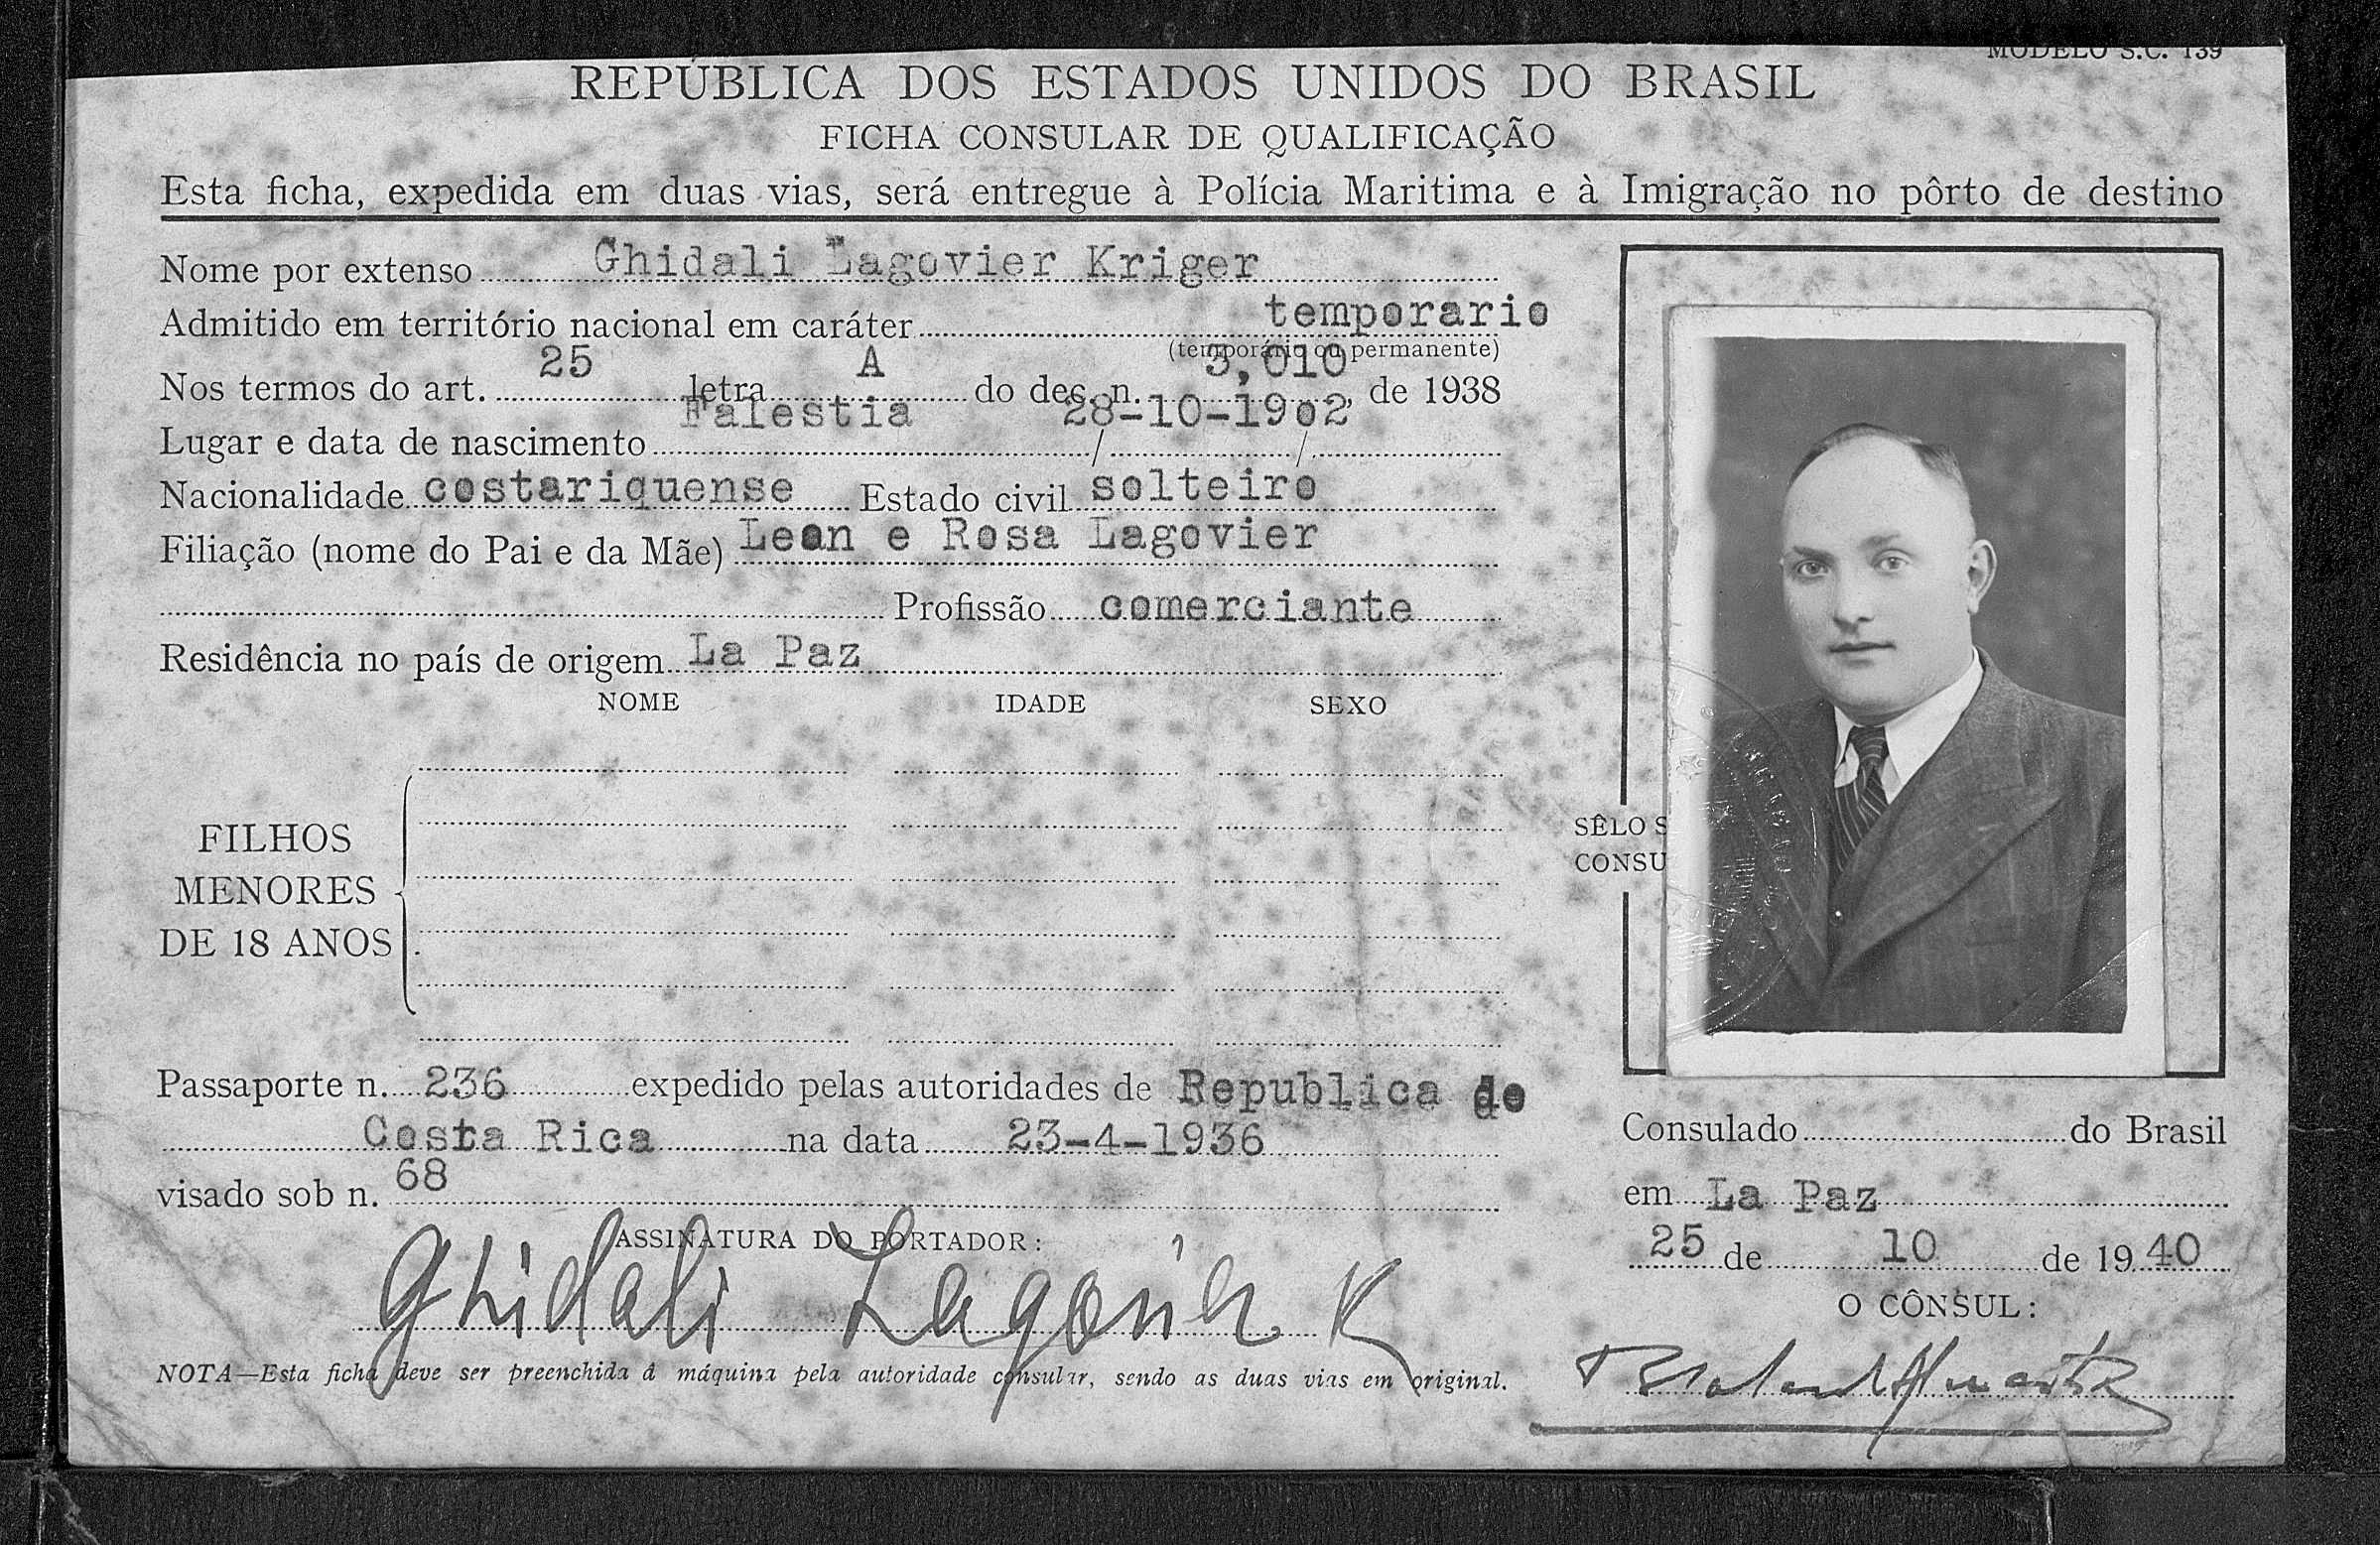 MODELO S.C. 139
REPÚBLICA DOS ESTADOS UNIDOS DO BRASIL
FICHA CONSULAR DE QUALIFICAÇÃO
Esta ficha, expedida em duas vias, será entregue à Polícia Maritima e à Imigração no pôrto de destino
Nome por extenso Ghidali Lagovier Kriger
Admitido em território nacional em caráter temporario
(temporário ou permanente)
Nos termos do art. 25 letra A do dec. n. 3,010, de 1938
Lugar e data de nascimento Palestia 28-10-1902
Nacionalidade costariquense Estado civil solteiro
Filiação (nome do Pai e da Mãe) Leon e Rosa Lagovier
Profissão comerciante
Residência no país de origem La Paz
NOME IDADE SEXO
FILHOS
MENORES
DE 18 ANOS
Passaporte n. 236 expedido pelas autoridades de Republica de
Costa Rica na data 23-4-1936
visado sob n. 68
ASSINATURA DO PORTADOR:
Ghidali Lagovier K
NOTA—Esta ficha deve ser preenchida à máquina pela autoridade consular, sendo as duas vias em original.
SÊLO S
CONSU
Consulado do Brasil
em La Paz
25 de 10 de 1940
O CÔNSUL: